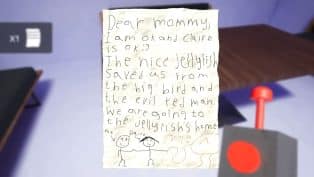 x1
Dear mommy,
I am ok and Claire
is ok :)
The nice jellyfish
saved us from
the big bird and
the evil red man.
we are going to
the jellyfish's home
me